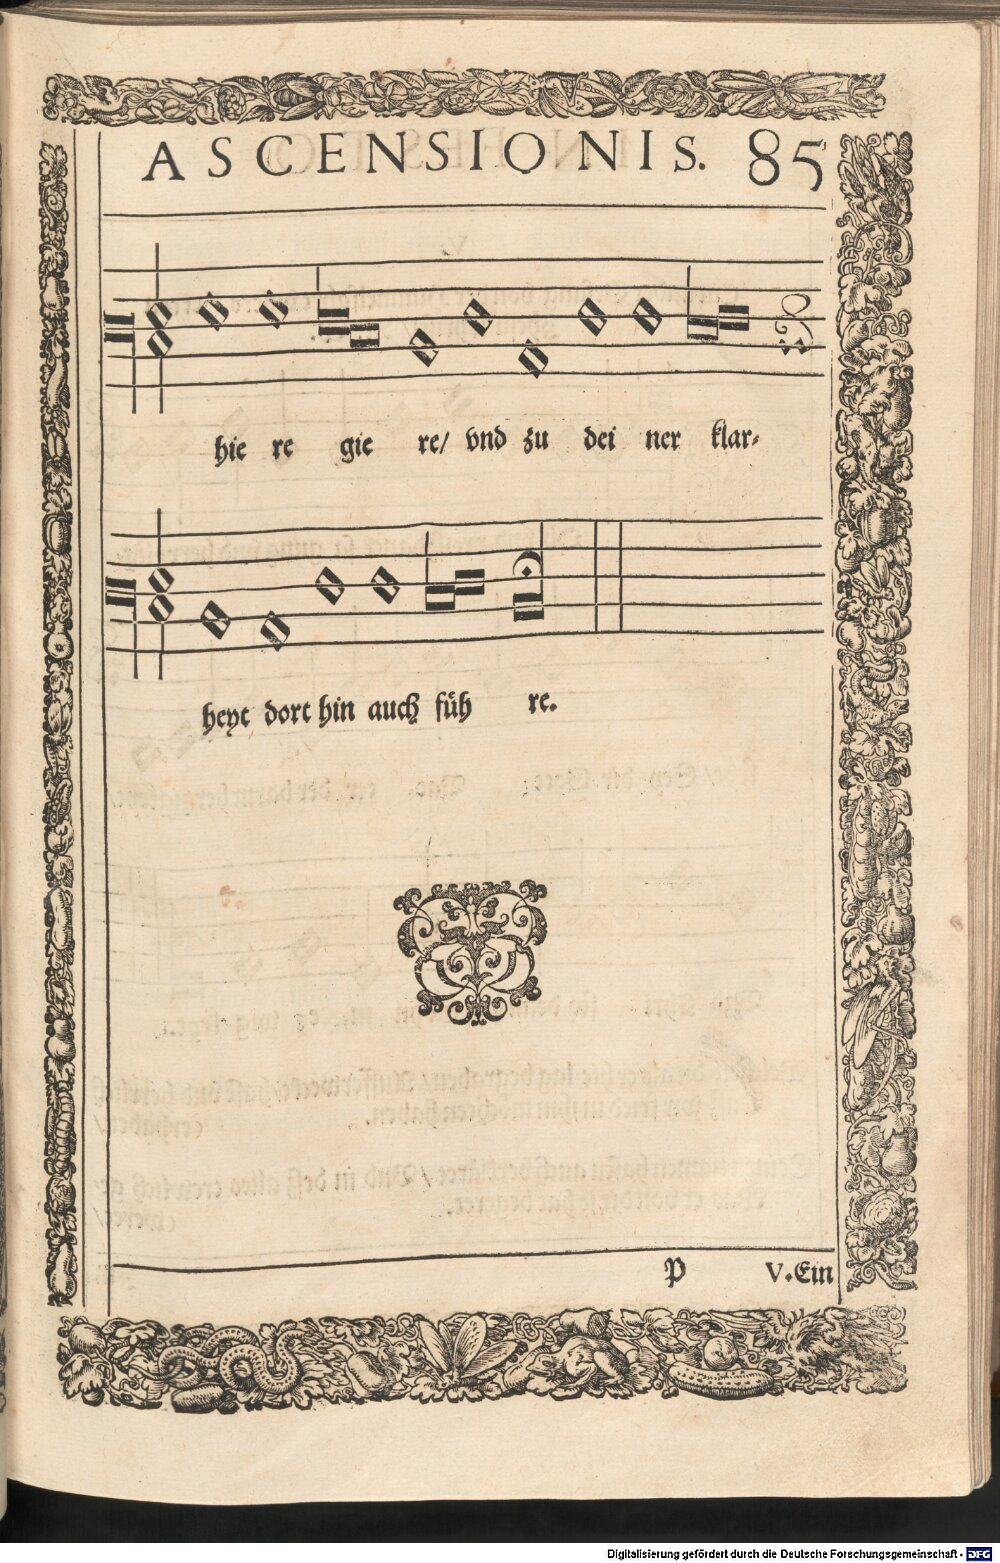 ASCENSIONIS. 85
hie re gie re/ vnd zu dei ner klar-
heyt dort hin auch füh re.
P V. Ein
Digitalisierung gefördert durch die Deutsche Forschungsgemeinschaft - DFG